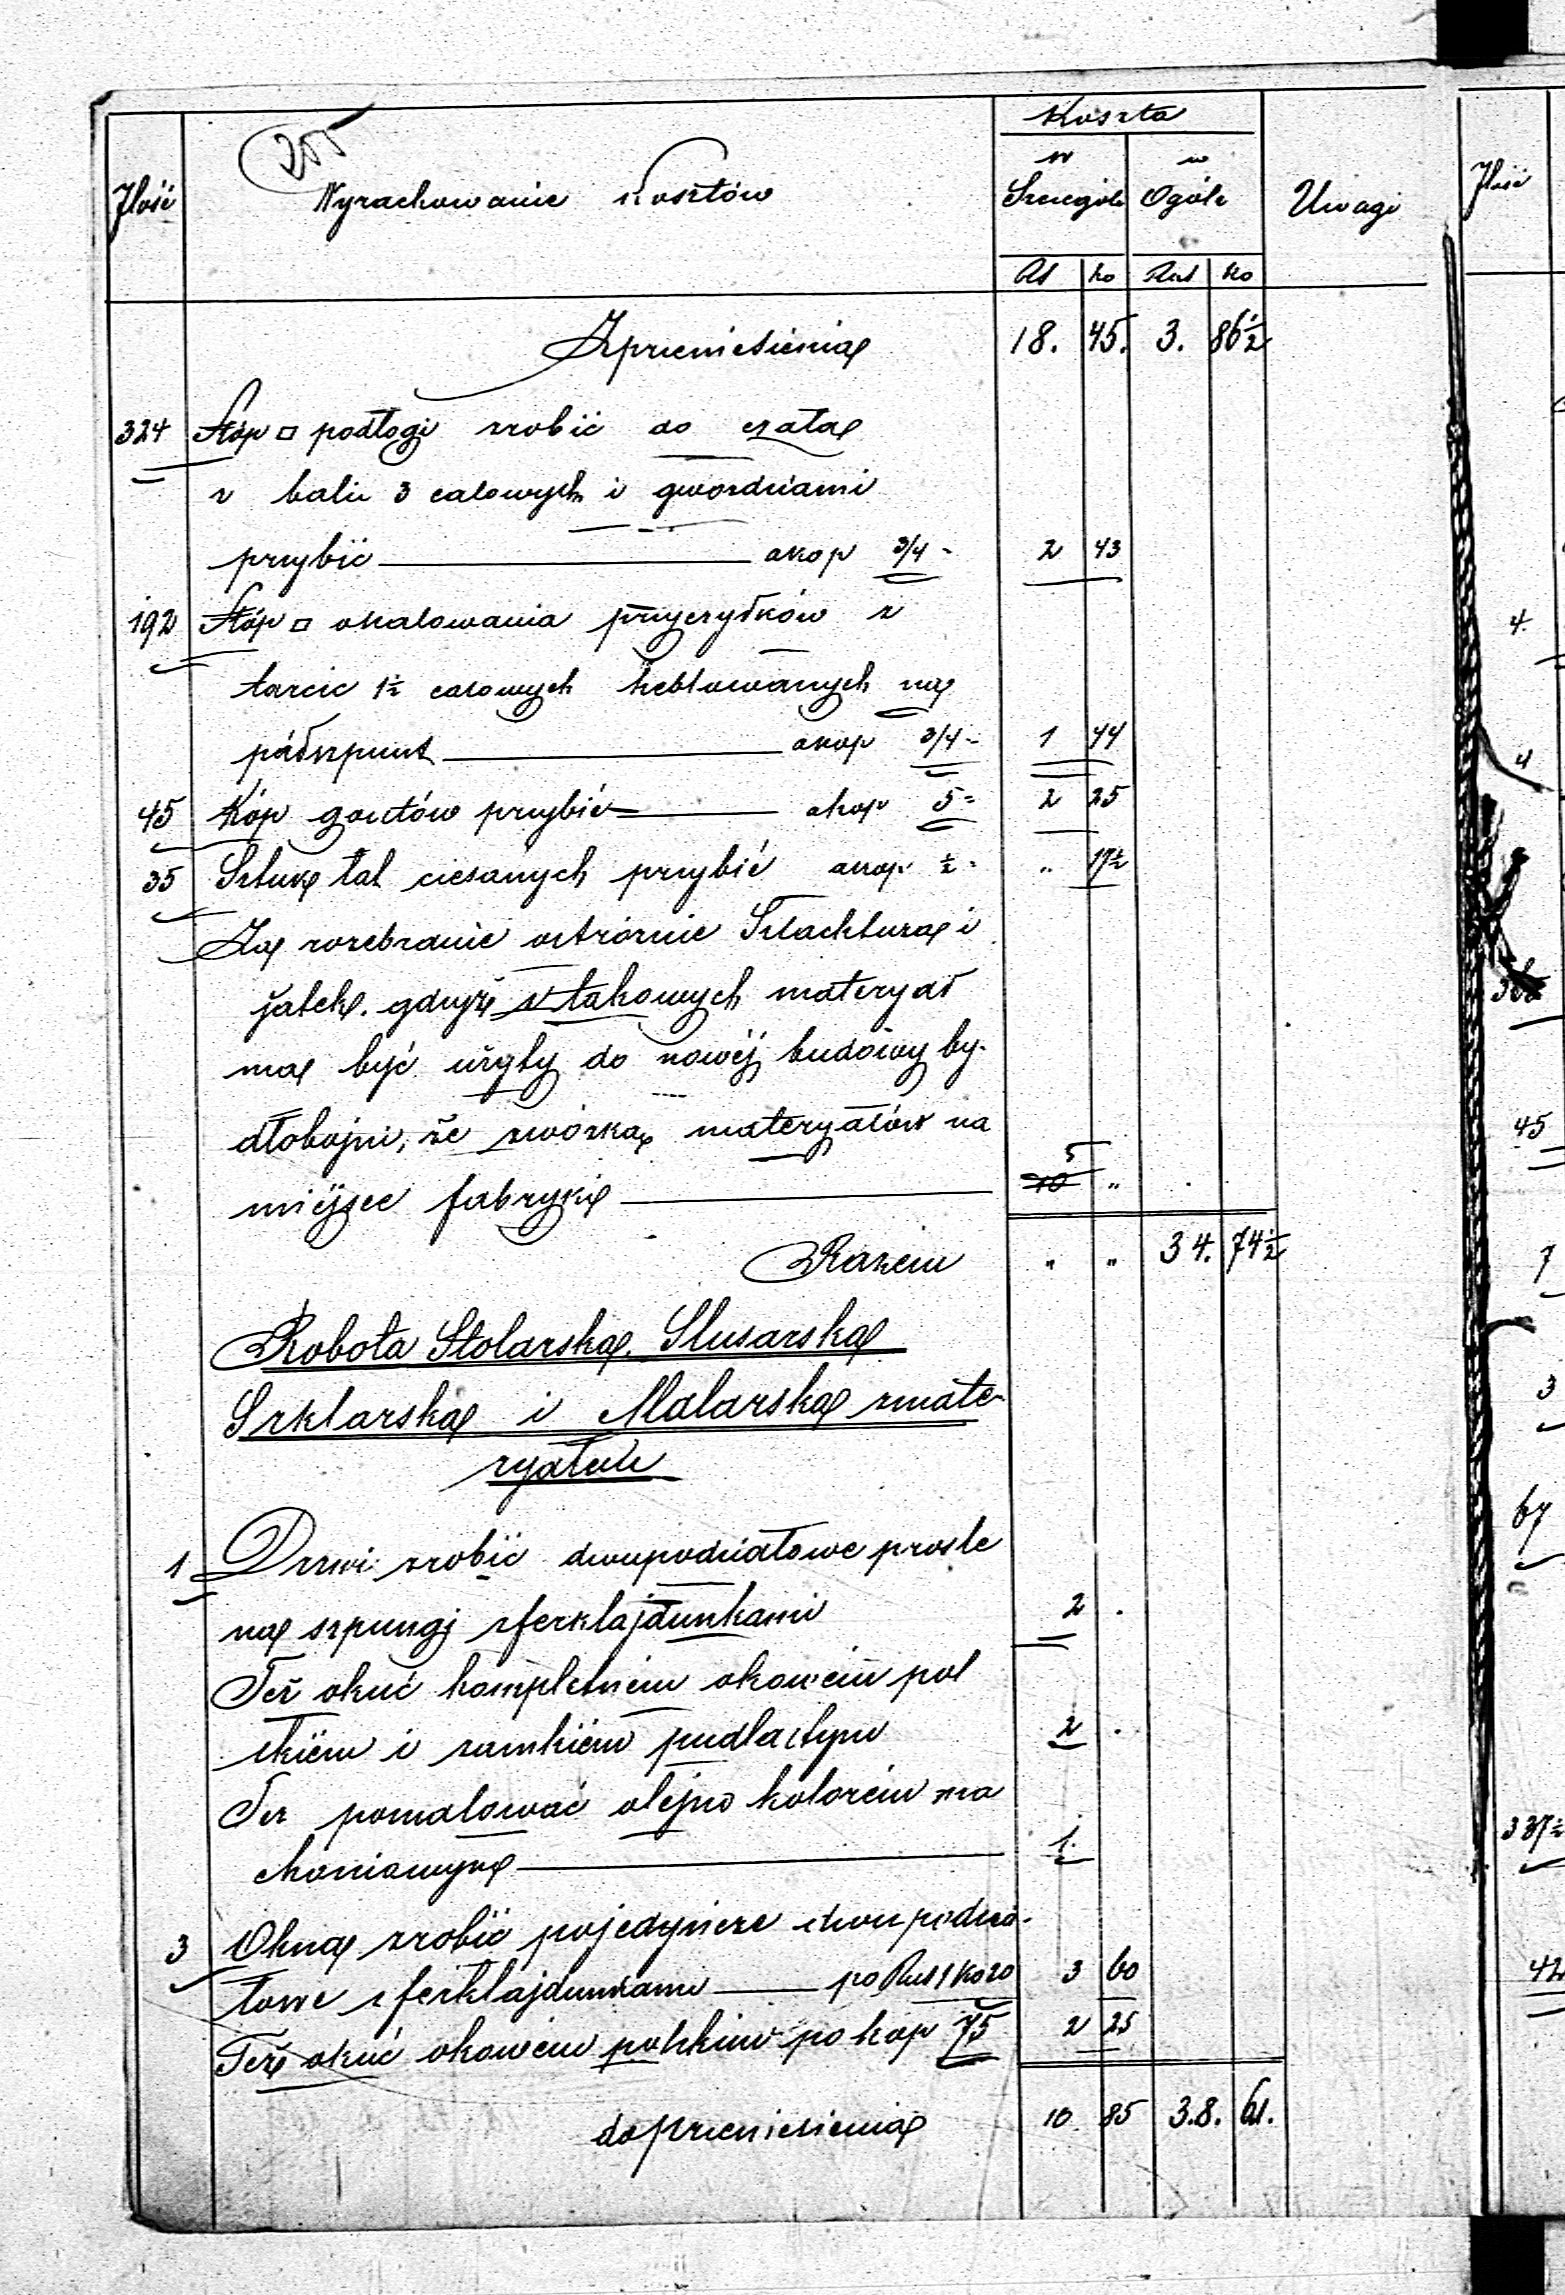 205
Ilość
Wyrachowanie kosztów
Koszta
w Szczególe
w Ogóle
Uwagi
Rs ko Rub ko
Z przeniesienia 18. 45. 3. 86½
324 Stóp □ podłogi zrobić do
z bali 3 calowych i gwoździami
przybić akop 3/4 2 43
192 Stóp □ okalowania przyczyłków z
tarcic 1½ calowych heblowanych na
akop 3/4 1 44
45 Kóp gontów przybić akop 5 2 25
35 Sztuk łat ciesanych przybić akop ½ " 17½
Za rozebranie ostróżnie Szlachtuza i
jatek. gdyż z takowych materyał
ma być użyty do nowéj budowy by-
dłobojni, ze zwózką materyałów na
miéjsce fabryki 10 5 "
Razem " " 34. 74½
Robota Stolarska, Slusarska
Szklarska i Malarska zmate-
ryałem
1 Drzwi zrobić dwupodziałowe proste
na szpungi zferklajdunkami 2 .
Też okuć kompletném okowem pol
skiém i zamkiém pudlastym 2 .
Też pomalować oléjno kolorém ma
choniowym 1.
3 Okna zrobić pojedyncze dwupodzia-
łowe zferklajdunkami po Rub 1 ko 20 3 60
Też okuć okowem polskim po kop 75 2 25
do przeniesienia 10 85 3.8. 61.
Ilość
4.
4
45
7
3
67
337½
42